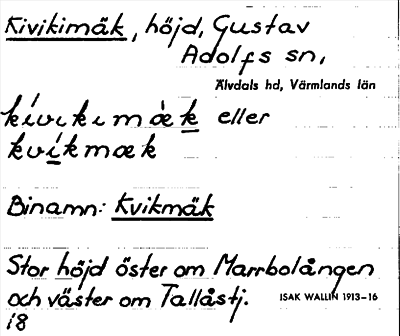 Kivikimäk, höjd, Gustav
Adolfs sn,
Älvdals hd, Värmlands län
kívikimæ̀k eller
kvíkmæk
Binamn: Kvikmäk
Stor höjd öster om Marrbolången
och väster om Tallåstj.
ISAK WALLIN 1913-16
18